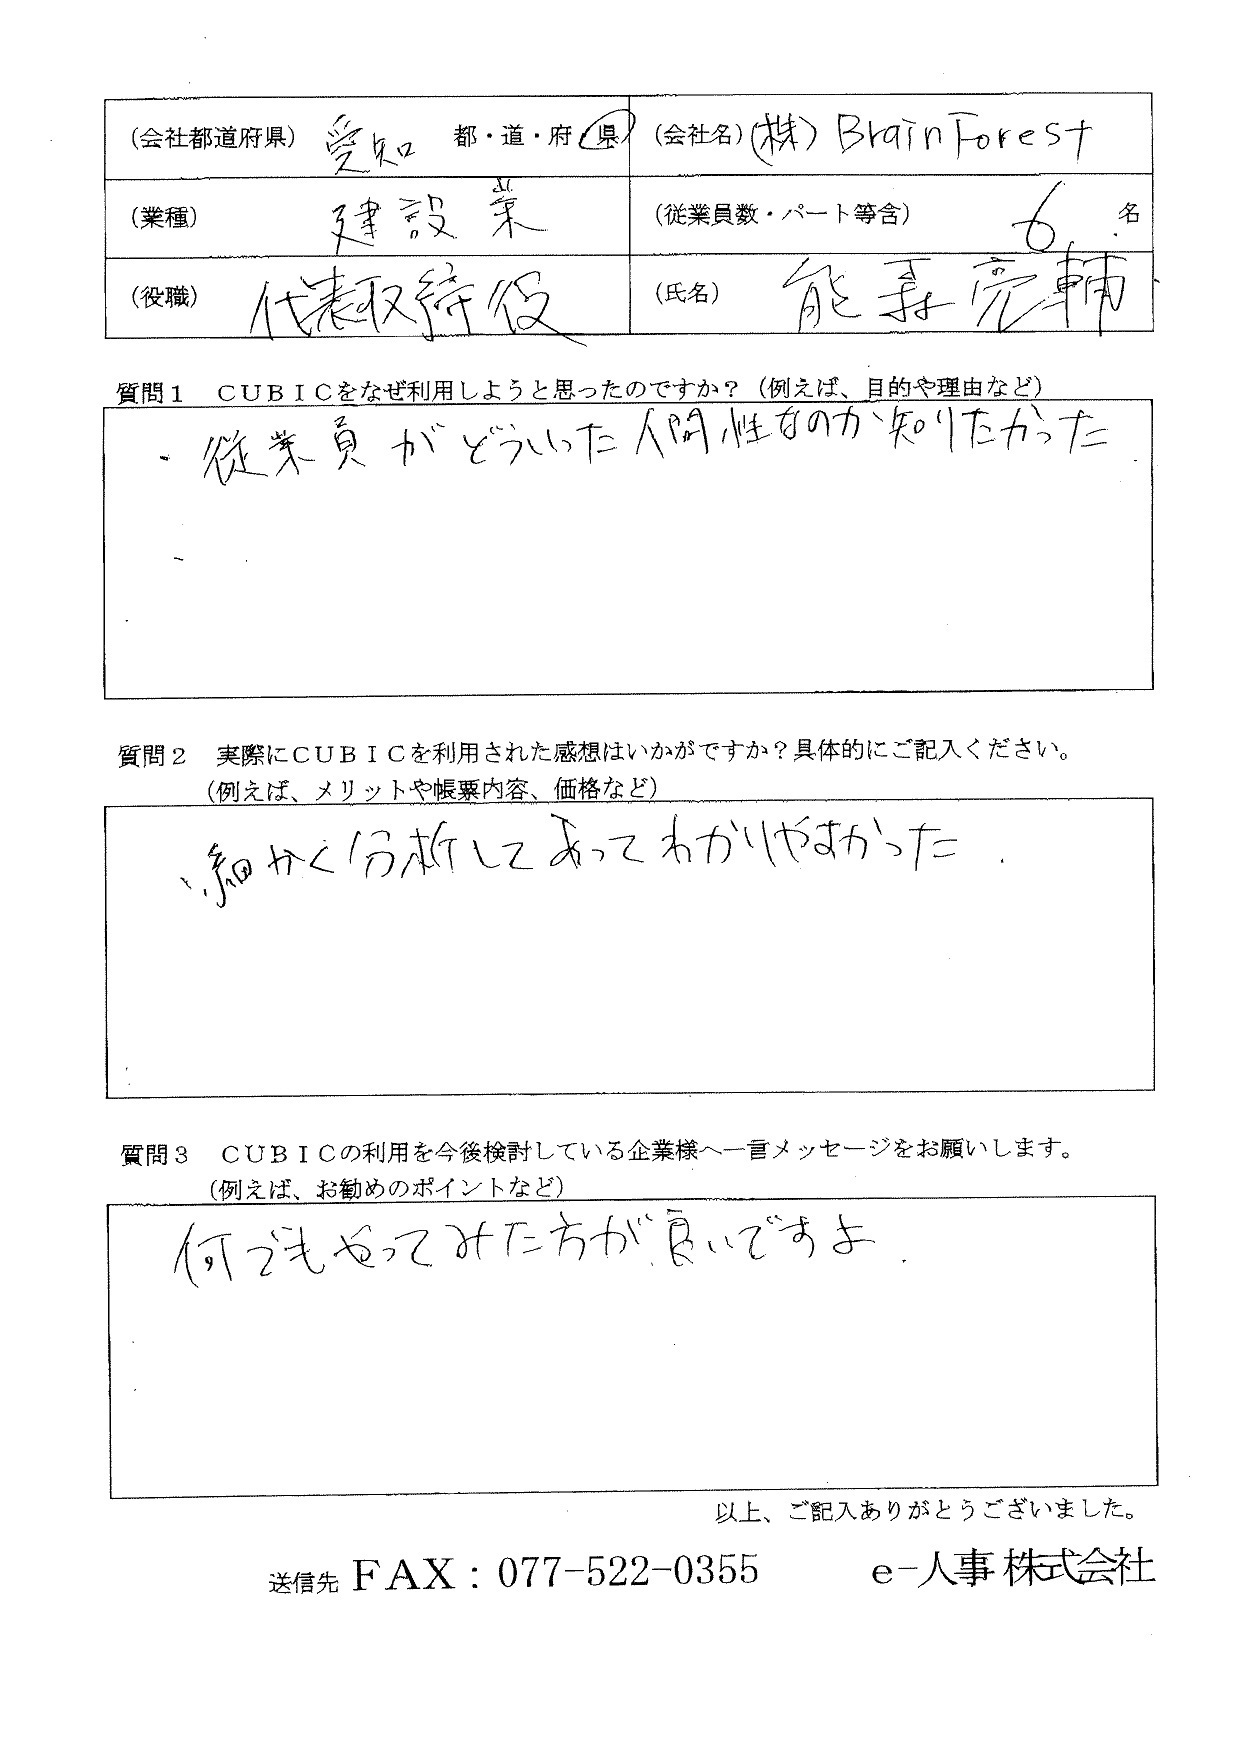 (会社都道府県) 愛知 都・道・府・県 (会社名) (株) BrainForest
(業種) 建設業 (従業員数・パート等含) 6 名
(役職) 代表取締役 (氏名) 能森亮輔
質問1 CUBICをなぜ利用しようと思ったのですか?(例えば、目的や理由など)
・従業員がどういった人間性なのか知りたかった
質問2 実際にCUBICを利用された感想はいかがですか?具体的にご記入ください。
(例えば、メリットや帳票内容、価格など)
細かく分析してあってわかりやすかった
質問3 CUBICの利用を今後検討している企業様へ一言メッセージをお願いします。
(例えば、お勧めのポイントなど)
何でもやってみた方が良いですよ
以上、ご記入ありがとうございました。
送信先 FAX:077-522-0355 e-人事株式会社